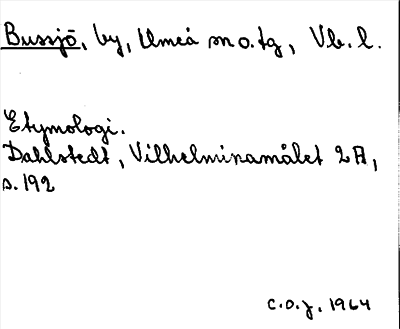 Bussjö, by, Umeå sn o. tg, Vb. l.
Etymologi.
Dahlstedt, Vilhelminamålet 2A,
s. 192
C.O.J. 1964